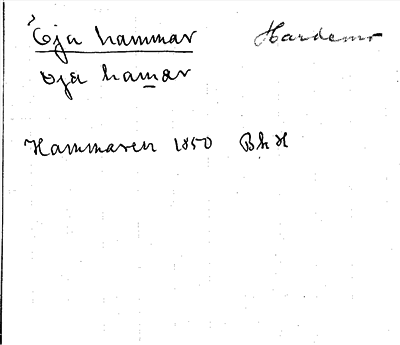 Öja hammar Hardemo
oja hamar
Hammaren 1850 BhH